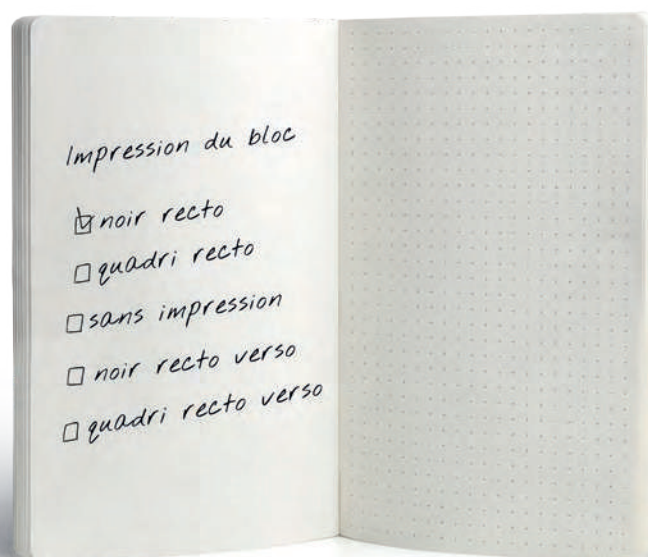 Impression du bloc
noir recto
quadri recto
sans impression
noir recto verso
quadri recto verso